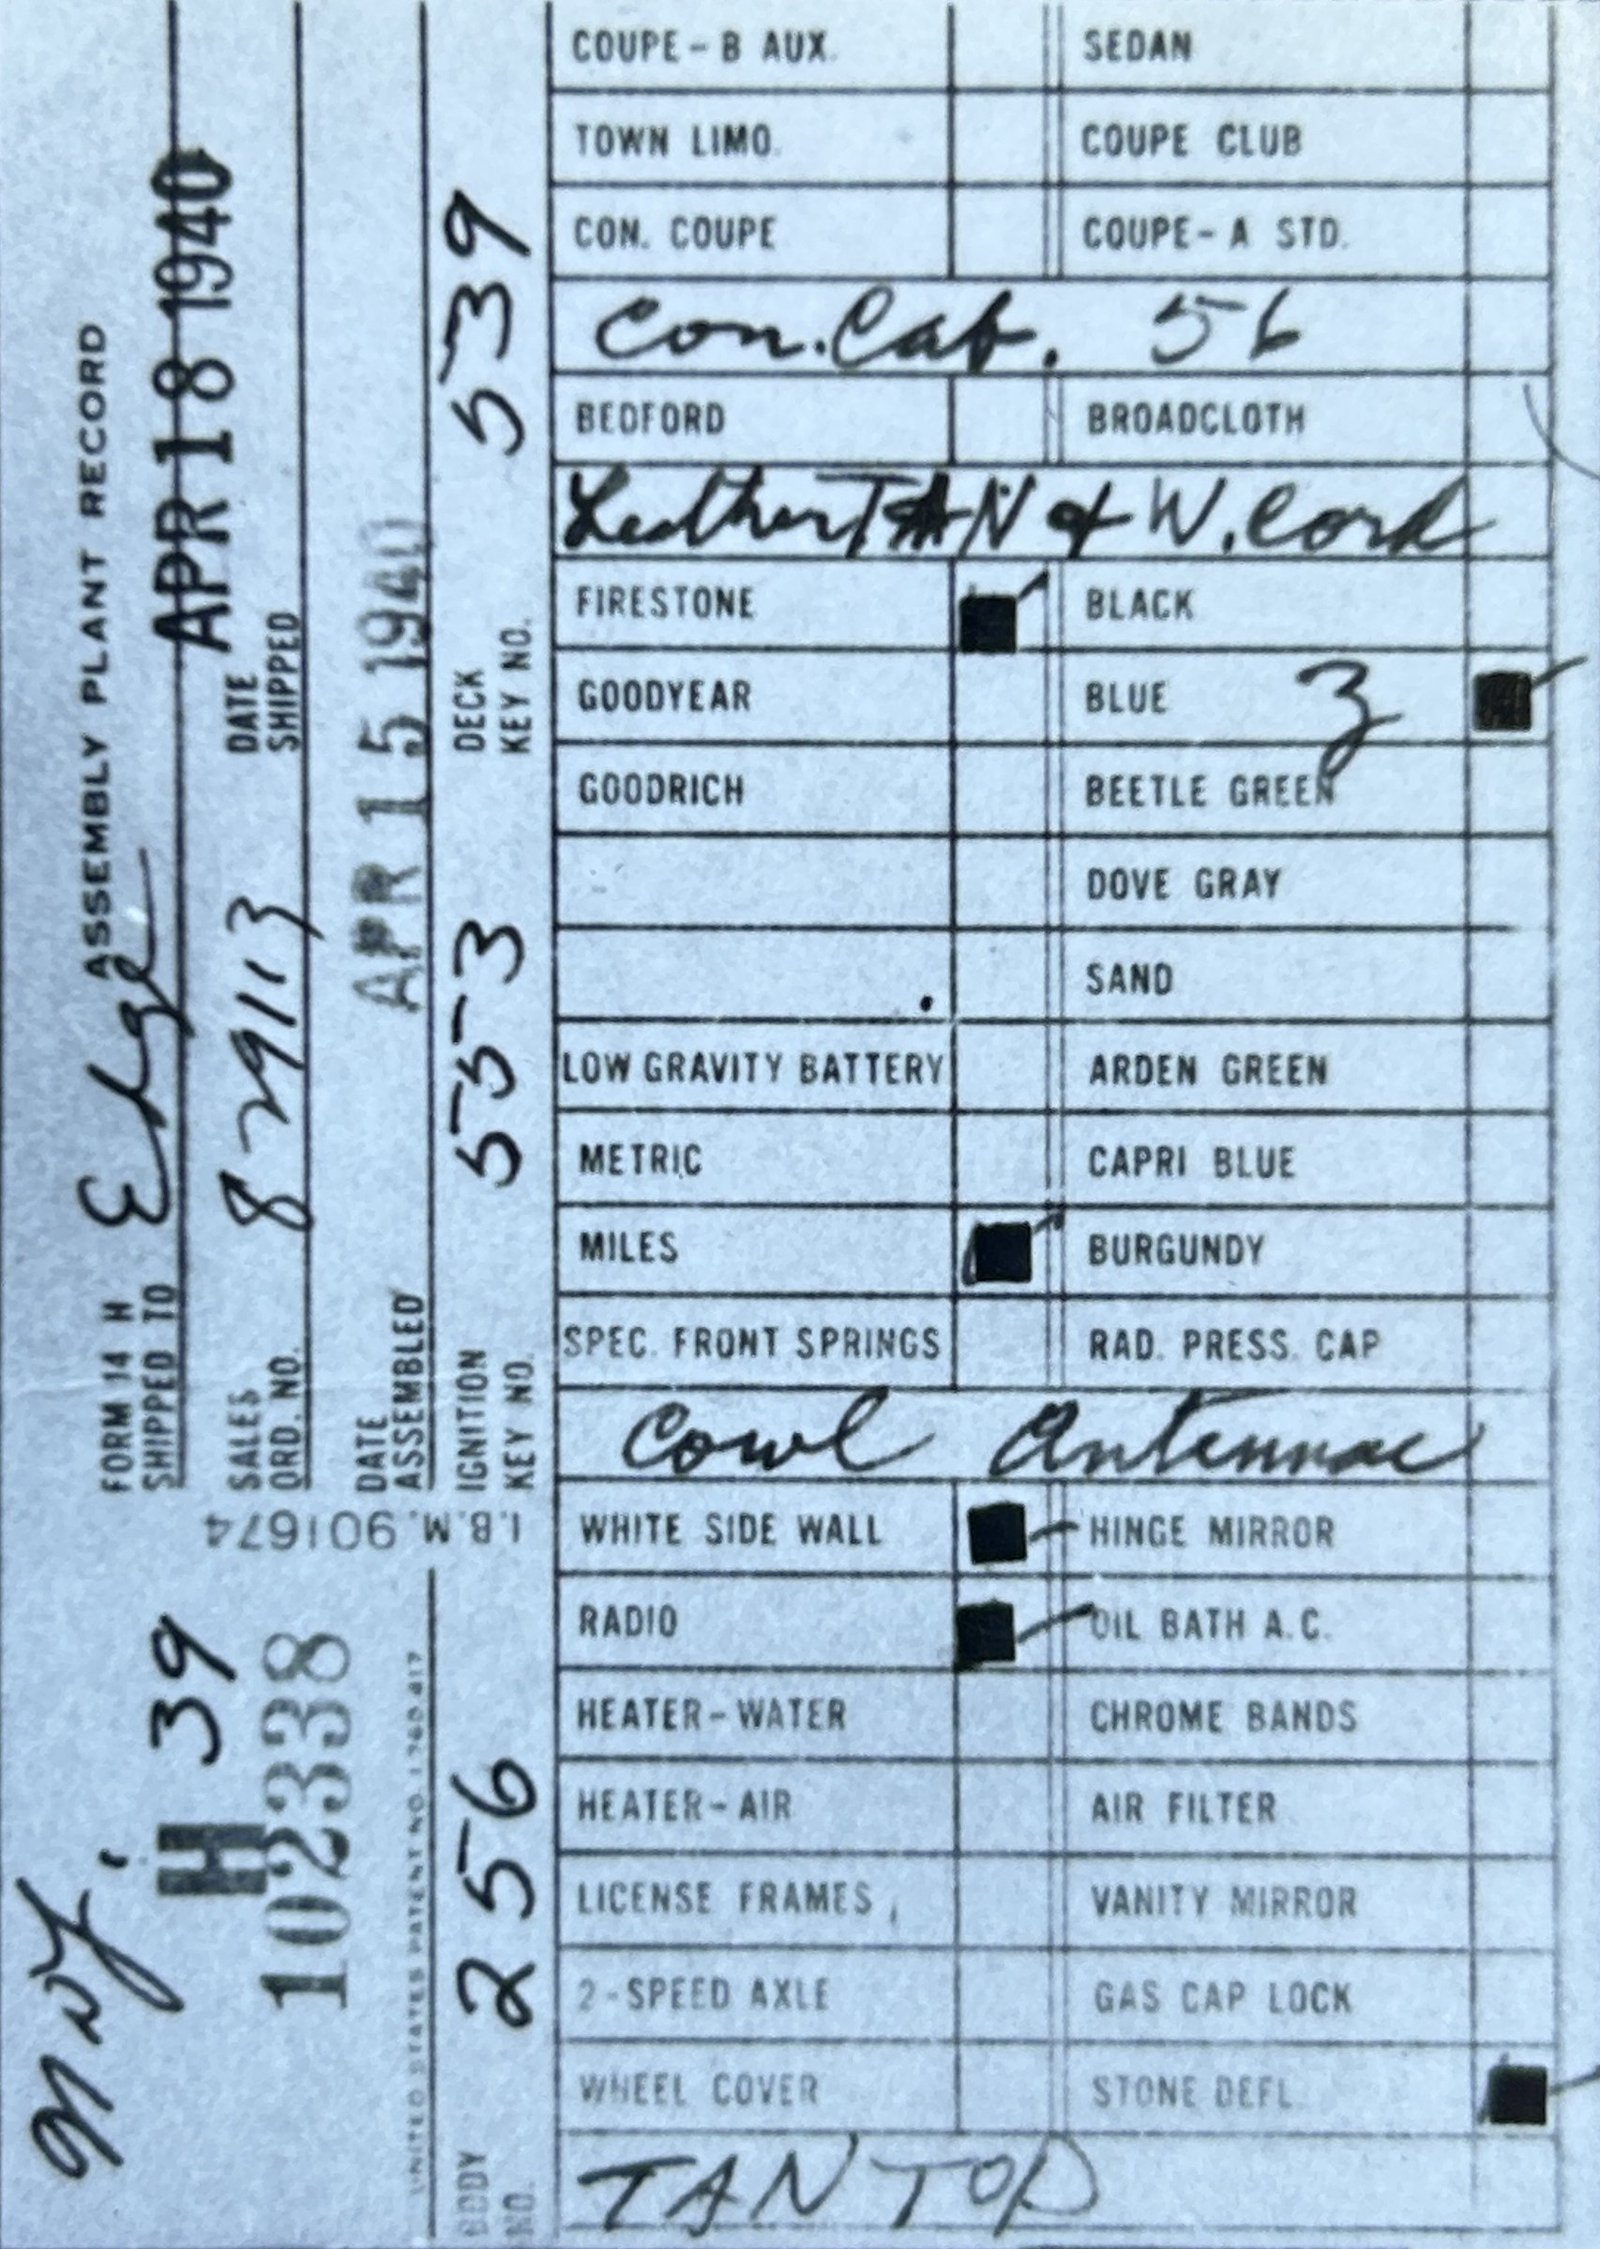 FORM 14 H ASSEMBLY PLANT RECORD
SHIPPED TO Edge
APR 18 1940
SALES ORD. NO. 8 29113
DATE SHIPPED
DATE ASSEMBLED APR 15 1940
IGNITION KEY NO. 553
DECK KEY NO. 539
I.B.M. 901674
H 39
102338
UNITED STATES PATENT NO.
BODY NO. 256
COUPE-B AUX. SEDAN
TOWN LIMO. COUPE CLUB
CON. COUPE COUPE-A STD.
Con. Cab. 56
BEDFORD BROADCLOTH
Leather TAN & W. Cord
FIRESTONE BLACK
GOODYEAR BLUE 3
GOODRICH BEETLE GREEN
DOVE GRAY
SAND
LOW GRAVITY BATTERY ARDEN GREEN
METRIC CAPRI BLUE
MILES BURGUNDY
SPEC. FRONT SPRINGS RAD. PRESS. CAP
Cowl Antennae
WHITE SIDE WALL HINGE MIRROR
RADIO OIL BATH A.C.
HEATER-WATER CHROME BANDS
HEATER-AIR AIR FILTER
LICENSE FRAMES VANITY MIRROR
2-SPEED AXLE GAS CAP LOCK
WHEEL COVER STONE DEFL.
TAN TOP